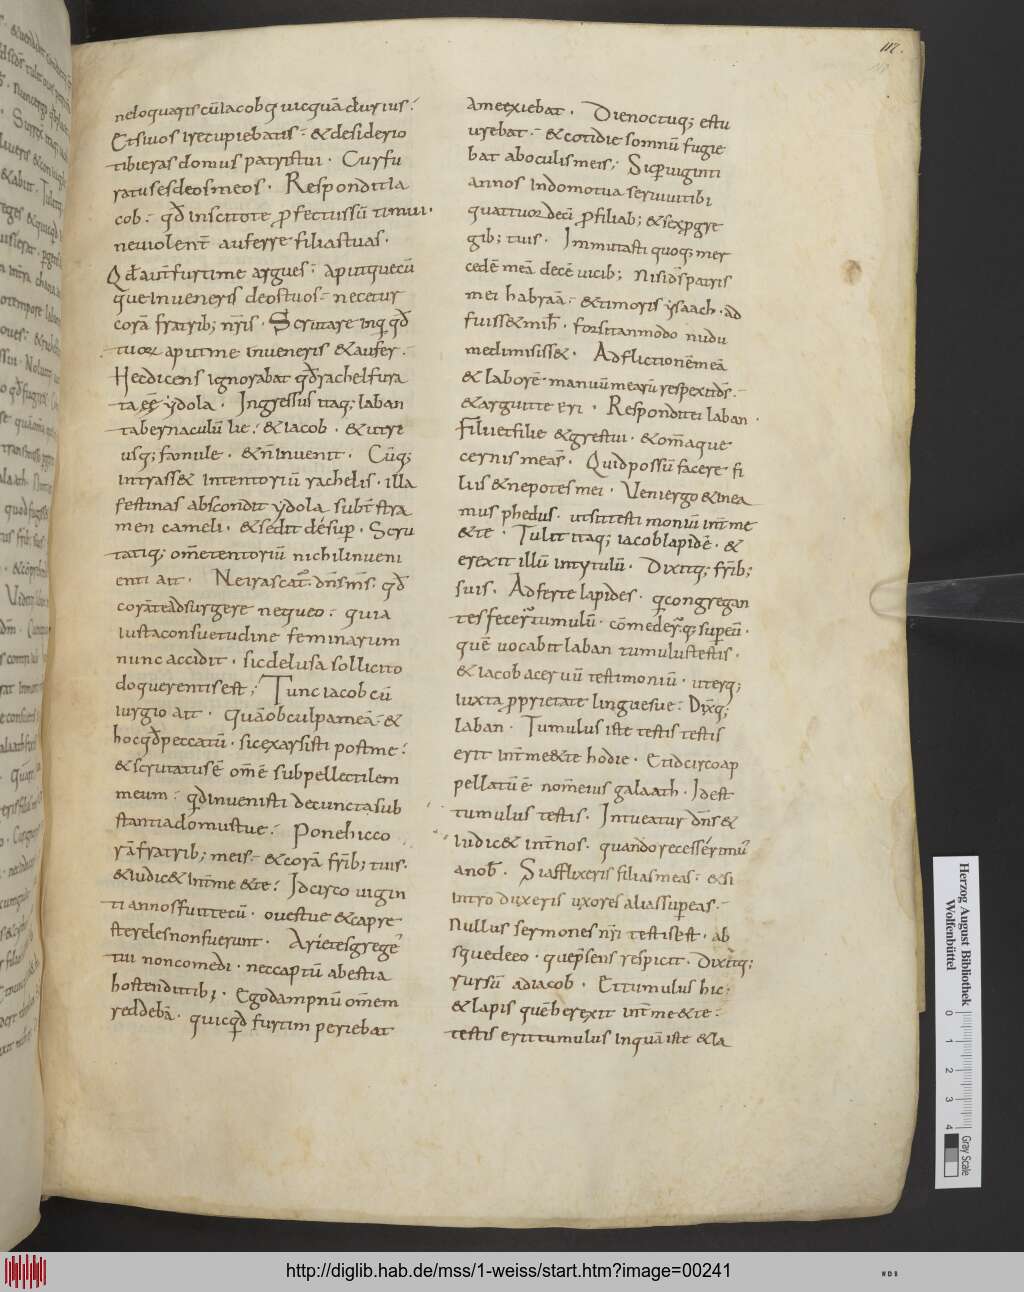 112.
neloquariscu̅ Iacob q uicqua̅ durius
Et suos ire cupiebatis & desiderio
tibi eras domus patris tui · Cur fu
ratus es deos meos · Respondit Ia
cob · qđ inscio te profectus su̅ timui ·
ne uiolent̅ auferre filias tuas ·
Qđ aut̅ furti me argues · apud que̅cu̅
que inueneris deos tuos · necetur
cora̅ fratrib; nr̅is · Scrutare inq qđ
tuor̅ apud me inueneris & aufer ·
Hec dicens ignorabat qđ rachel fura
ta e̅e̅ ydola · Ingressus itaq; laban
tabernaculu̅ lie · & iacob · & utri
usq; famule · & n̅ inuenit · Cu̅q;
intrass& in tentoriu̅ rachelis · illa
festinas abscondit ydola subt̅ stra
men cameli · & sedit desup · Scru
tatiq; om̅e tentoriu̅ nichil inueni
enti ait · Ne irascat̅ dn̅s m̅s · qđ
cora̅ te adsurgere nequeo · quia
iuxta consuetudine feminarum
nunc accidit · sic delusa sollicito
do querentis est · Tunc iacob cu̅
iurgio ait · Qua̅ ob culpa mea̅ · &
hoc qđ peccatu̅ · sic exarsisti post me ·
& scrutatus e̅ om̅e̅ subpellectilem
meum · qđ inuenisti de cuncta sub
stantia domus tue · Pone hic co
ra̅ fratrib; meis · & cora̅ fr̅ib; tuis ·
& iudic& int̅ me & te · Idcirco uigin
ti annos fui tecu̅ · oues tue & capre
steriles non fuerunt · Arietes grege̅
tui non comedi · nec captu̅ a bestia
hostendi tibi · Ego dampnu̅ om̅em
reddeba̅ · quicqđ furtim periebat
A me exiebat · Die noctuq; estu
urebar · & cotidie somnu̅ fugie
bat ab oculis meis · Sicq per uiginti
annos In domo tua seruiui tibi
quattuordeci̅ p filiab; & sex p gre
gib; tuis · Immutasti quoq; mer
cede̅ mea̅ dece̅ uicib; Nisi ds̅ patris
mei habraa̅ · & timor is ysaach · ad
fuiss& mih̅ · forsitan modo nudu
me dimisiss& · Adflictione̅ mea̅
& labore̅ manuu̅ mearu̅ respexit ds̅ ·
& arguit te eri · Respondit ei laban ·
Filii et filie & greges tui · & om̅a que
cernis mea s̅ · Quid possu̅ facere fi
liis & nepotes mei · Veni ergo & inea
mus phedus · ut sit testimoniu̅ int̅ me
& te · Tulit itaq; iacob lapide̅ · &
erexit illu̅ in tytulu̅ · Dixitq; fr̅ib;
suis · Adferte lapides · q congregan
tes fecer̅ tumulu̅ · co̅meder̅q; super eu̅ ·
que̅ uocabit laban tumulus testis ·
& iacob aceruu̅ testimoniu̅ · uterq;
iuxta p̅prietate lingue sue · Dix̅q;
laban · Tumulus iste testis testis
erit int̅ me & te hodie · Et idcirco ap
pellatu̅ e̅ nom̅ eius galaath · Id est
tumulus testis · Intueatur dn̅s &
iudic& int̅ nos · quando recesserimu̅
a nob̅ · Si afflixeris filias meas · & si
intro duxeris uxores alias super eas ·
Nullus sermones nr̅i testis est · ab
sque deo · que p̅sens respicit · Dixitq;
rursu̅ ad iacob · Et tumulus hic
& lapis que̅ herexit int̅ me & te ·
testis erit tumulus inqua̅ iste & la
Herzog August Bibliothek
Wolfenbüttel
0 1 2 3 4
Gray Scale
http://diglib.hab.de/mss/1-weiss/start.htm?image=00241